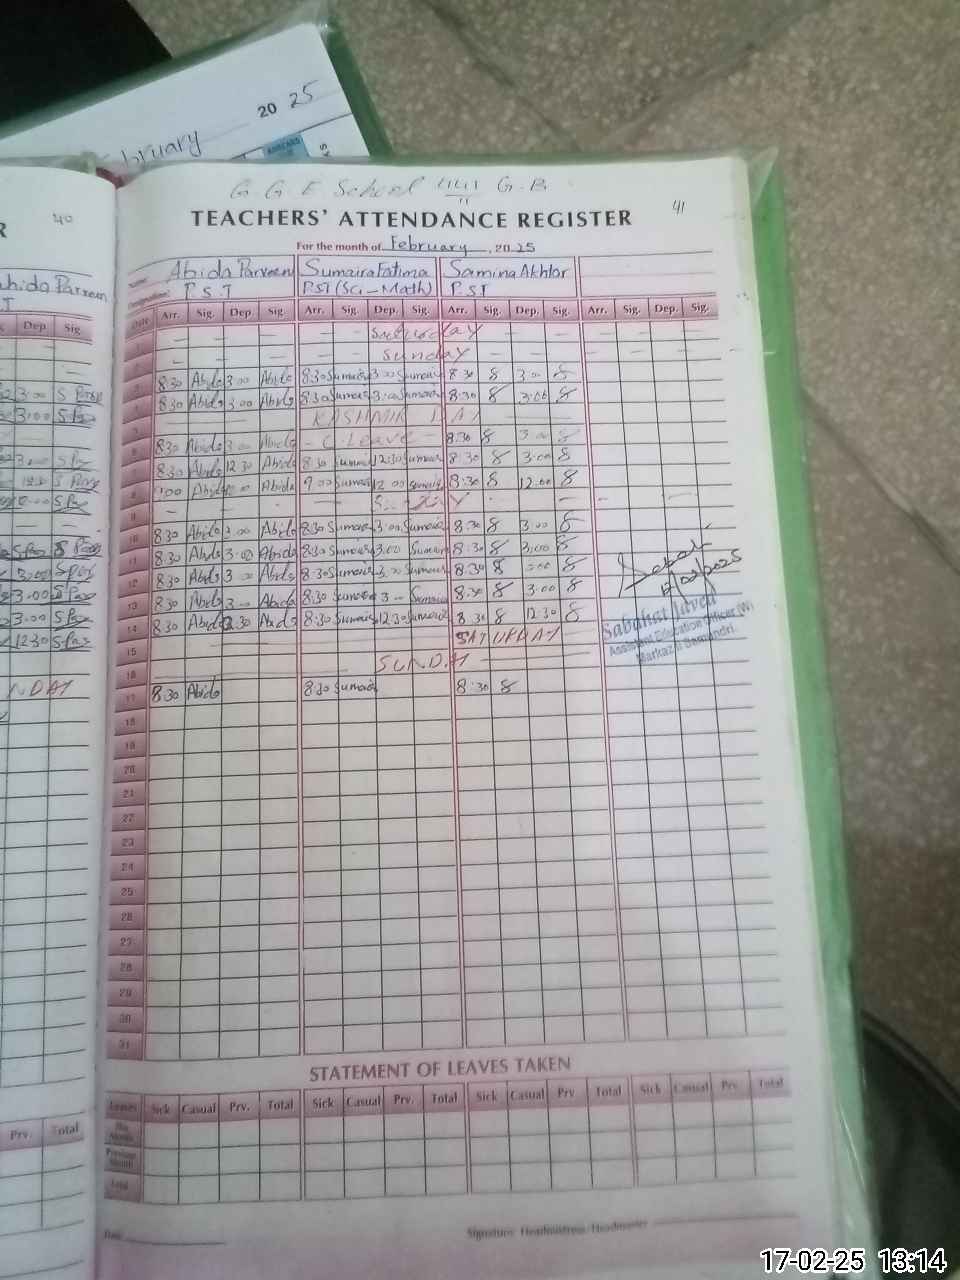 20 25
bruary
40
G. G. E School 441 G-B
41
TEACHERS' ATTENDANCE REGISTER
For the month of February, 2025
Name Abida Parveen Sumaira Fatima Samina Akhtar
Designation P.S.T PST (Sci-Math) P.ST
Date Arr. Sig. Dep. Sig Arr. Sig. Dep. Sig. Arr. Sig. Dep. Sig. Arr. Sig. Dep. Sig.
Saturday
Sunday
8:30 Abida 3:00 Abida 8:30 Sumaira 3:00 Sumaira 8:30 8 3:00 8
8:30 Abida 3:00 Abida 8:30 Sumaira 3:00 Sumaira 8:30 8 3:00 8
KASHMIR DAY
8:30 Abida 3:00 Abida - C. Leave - 8:30 8 3:00 8
8:30 Abida 12:30 Abida 8:30 Sumaira 12:30 Sumaira 8:30 8 3:00 8
Abida 9:00 Sumaira 12:00 Sumaira 8:30 8 12:00 8
9
10 8:30 Abida 3:00 Abida 8:30 Sumaira 3:00 Sumaira 8:30 8 3:00 8
11 8:30 Abida 3:00 Abida 8:30 Sumaira 3:00 Sumaira 8:30 8 3:00 8
12 8:30 Abida 3:00 Abida 8:30 Sumaira 3:00 Sumaira 8:30 8 3:00 8
13 8:30 Abida 3:00 Abida 8:30 Sumaira 3:00 Sumaira 8:30 8 3:00 8
14 8:30 Abida 12:30 Abida 8:30 Sumaira 12:30 Sumaira 8:30 8 12:30 8
15 SATURDAY
16 SUNDAY
17 8:30 Abida 8:30 Sumaira 8:30 8
18
19
20
21
22
23
24
25
26
27
28
29
30
31
Sabahat Javed
Assistant Education Officer (W)
Markaz
STATEMENT OF LEAVES TAKEN
Leaves Sick Casual Prv. Total Sick Casual Prv. Total Sick Casual Prv Total Sick Casual Prv Total
This Month
Previous Month
Total
Date
Signature Headmistress/Headmaster
Dep Sig.
Prv. Total
17-02-25 13:14